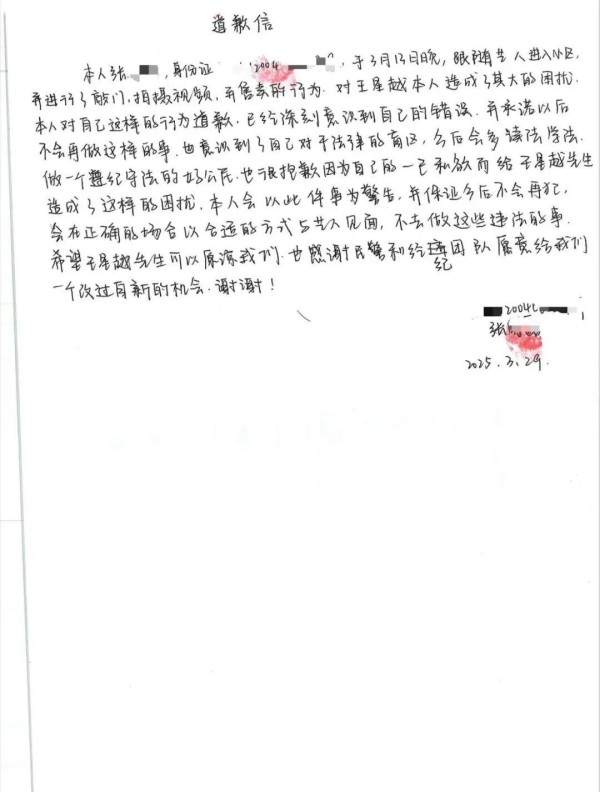 道歉信
本人张 ,身份证 2004 ,于3月13日晚,跟随艺人进入小区,
并进行了敲门,拍摄视频,并售卖的行为.对王星越本人造成了极大的困扰.
本人对自己这样的行为道歉.已经深刻意识到自己的错误.并承诺以后
不会再做这样的事.也意识到了自己对于法律的盲区,今后会多读法学法.
做一个遵纪守法的好公民.也很抱歉因为自己的一己私欲而给王星越先生
造成了这样的困扰.本人会以此件事为警告.并保证今后不会再犯,
会在正确的场合以合适的方式与艺人见面,不去做这些违法的事.
希望王星越先生可以原谅我们.也感谢民警和经纪团队愿意给我们
一个改过自新的机会.谢谢!
2004
张
2025.3.29.